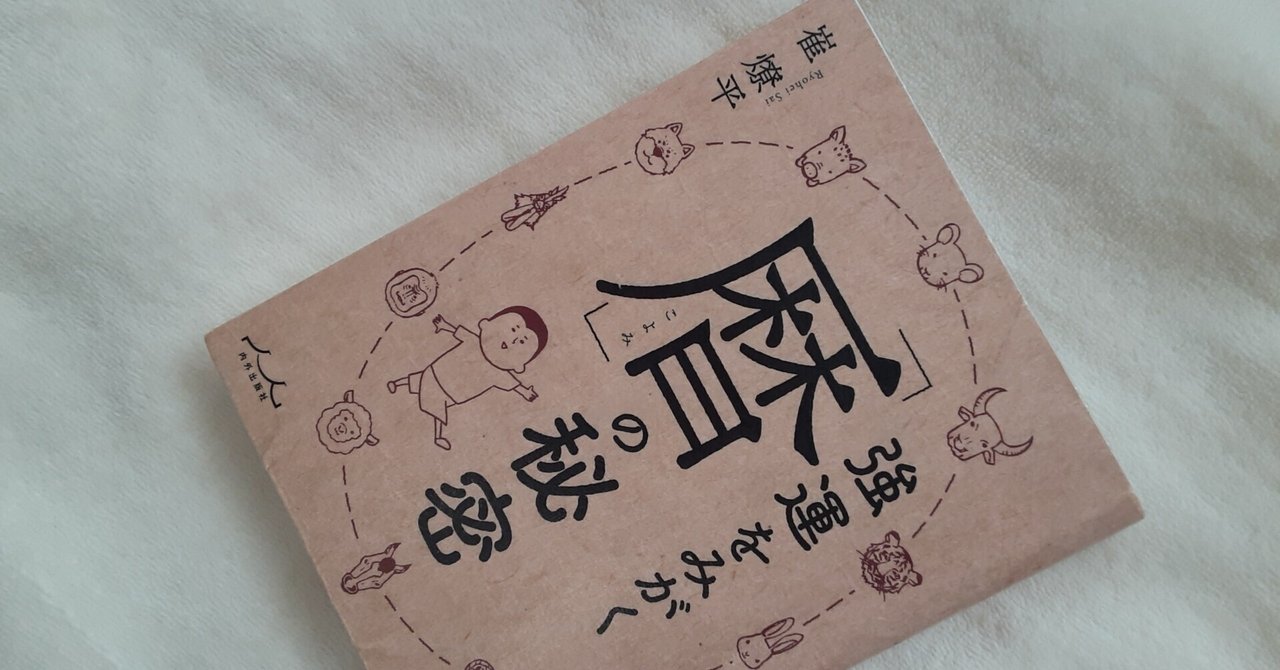 強運をみがく
「暦」の秘密
こよみ
崔燎平
Ryohei Sai
内外出版社